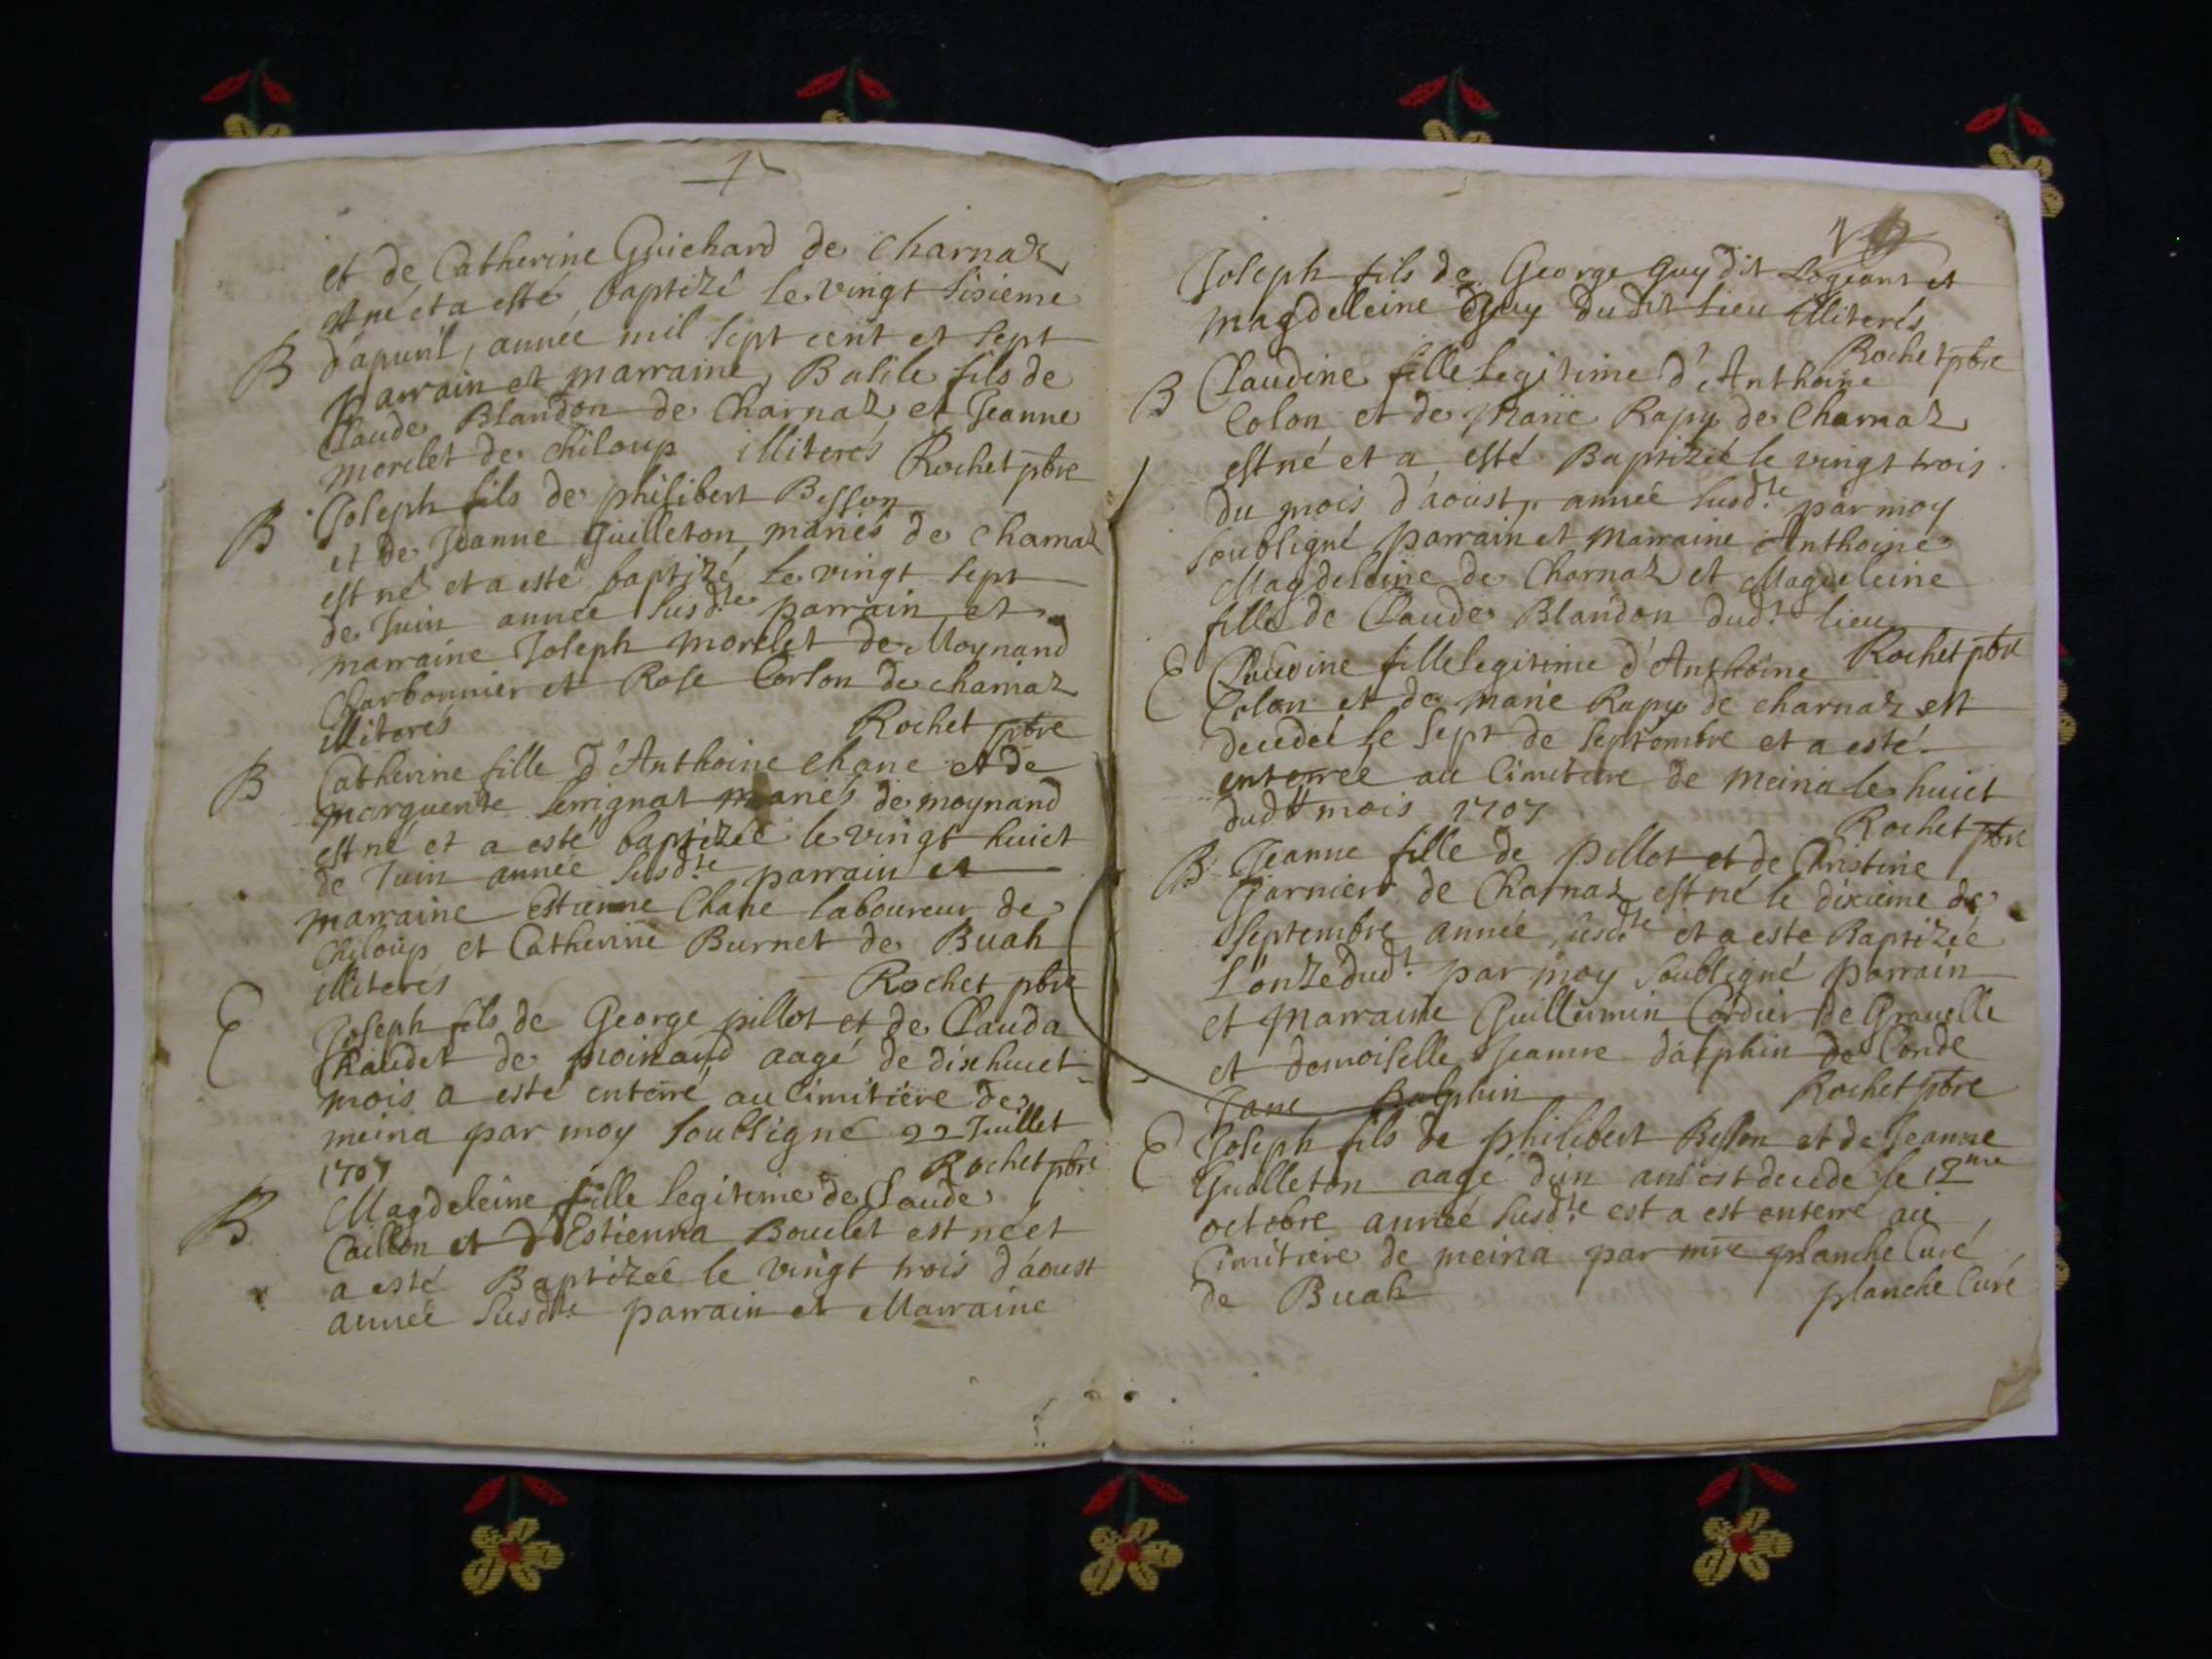 et de Catherine Guichard de Charnaz
est né et a esté baptizé le vingt sisieme
B d'apuril, année mil sept cent et sept
parrain et marraine, Basile fils de
Claude Blandon de Charnaz et Jeanne
morelet de Chiloup illiterés Rochet pbre
B Joseph fils de philibert Besson
et de Jeanne Guilleton mariés de Charnaz
est né et a esté baptizé le vingt sept
de Juin année susd.te parrain et
marraine Joseph morelet de Moynand
Charbonnier et Rose Corlon de charnaz
illiterés Rochet pbre
B Catherine fille d'Anthoine Chane et de
marguerite Perrignat mariés de moynand
est né et a esté baptizéé le vingt huict
de Juin année susd.te parrain et
marraine Estienne Chane laboureur de
Chiloup et Catherine Burnet de Buah
illiterés Rochet pbre
E Joseph fils de George pillot et de Clauda
Chaudet de moinand aagé de dixhuict
mois a esté enterré au Cimitiere de
meina par moy soubsigné 22 Juillet
1707 Rochet pbre
B Magdeleine fille legitime de Claude
Caillon et d'Estienna Boulet est né et
a esté Baptizéé le vingt trois d'aoust
année susd.te parrain et Marraine
Joseph fils de George Guy dit Logeant et
magdeleine Guy dudit lieu illiterés
Rochet pbre
B Claudine fille legitime d'Anthoine
Colon et de marie Rapy de Charnaz
est né et a esté Baptizéé le vingt trois
du mois d'aoust, année susd.te par moy
soubsigné parrain et marraine Anthoine
Magdeleine de Charnaz et Magdeleine
fille de Claude Blandon dud.t lieu
Rochet pbre
E Claudine fille legitime d'Anthoine
Colon et de marie Rapy de charnaz est
decedéé le sept de septembre et a esté
enterrée au Cimitiere de meina le huict
dudt mois 1707
Rochet pbre
B Jeanne fille de pillot et de Christine
Garnier de Charnaz est né le dixieme de
septembre année susd.te et a esté Baptizéé
l'onze dud.t par moy soubsigné parrain
et marraine Guillermin Cordier de Grauelle
et demoiselle Jeanne dalphin de Conde
Jane Dalphin Rochet pbre
E Joseph fils de philibert Besson et de Jeanne
Guilleton aagé d'un ans est decedé le 12me
octobre année susd.te est a est enterré au
Cimitiere de meina par mre planche Curé
de Buah planche Curé